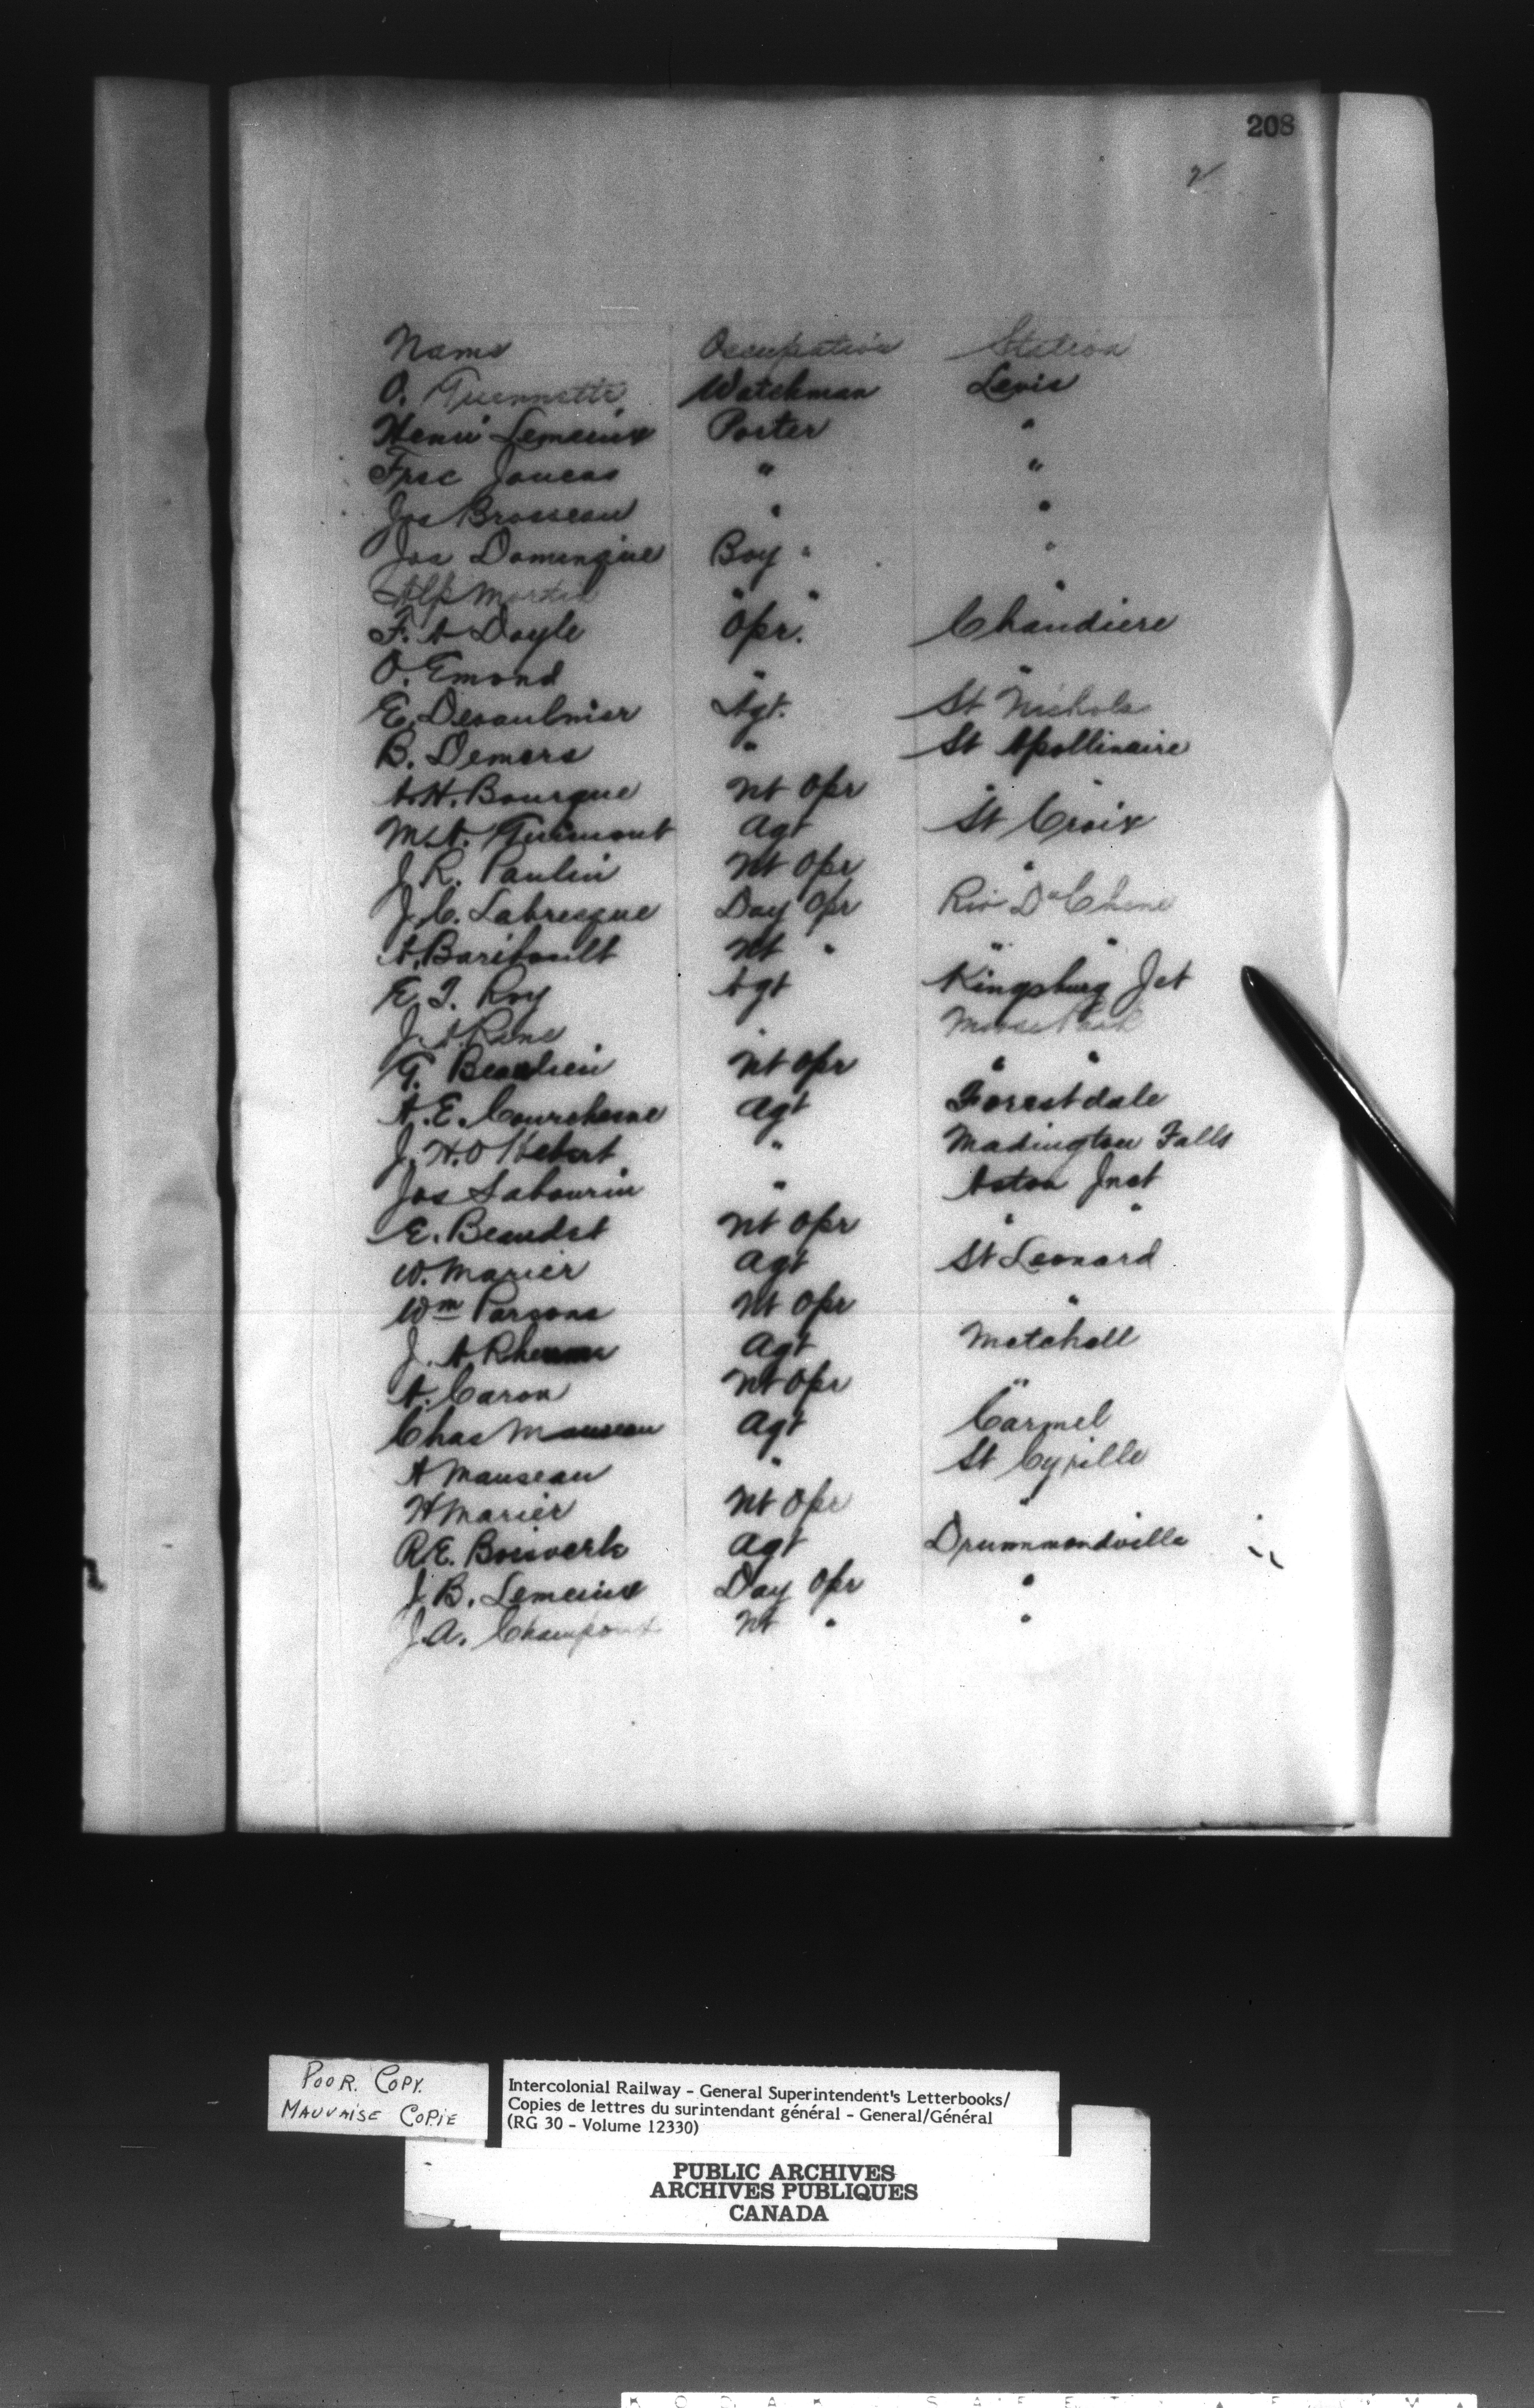 208
2
Name Occupation Station
O. Guennette Watchman Levis
Henri Lemieux Porter "
Frse Joncas " "
Jos Brosseau " "
Jos Domingue Boy " "
Alp Martin " " "
F. A Doyle Opr. Chaudiere
O. Emond " "
E. Desaulnier Agt. St Nichols
B. Demers " St Apollinaire
A.H. Bourque Nt Opr "
Guimont Agt St Croix
J. R. Paulin Nt Opr "
J. C. Labresque Day Opr Riv Du Chene
A. Baribault Nt " " "
E. T. Roy Agt Kingsburg Jct
J. A. Rene " Moose Park
G. Beaulieu Nt Opr " "
A. E. Courchesne Agt Forestdale
J. H. O Hebert " Madington Falls
Jos Sabourin " Aston Jnct
E. Beaudet Nt Opr " "
W. Marier Agt St Leonard
Wm Parsons Nt Opr "
J. A Agt Mitchell
A. Caron Nt Opr "
Chas Manseau Agt Carmel
A Manseau " St Cyrille
H Marier Nt Opr "
R. E. Boisverte Agt Drummondville
J. B. Lemieux Day Opr "
J. A. Nt " "
POOR. COPY.
MAUVAISE COPIE
Intercolonial Railway - General Superintendent's Letterbooks/
Copies de lettres du surintendant général - General/Général
(RG 30 - Volume 12330)
PUBLIC ARCHIVES
ARCHIVES PUBLIQUES
CANADA